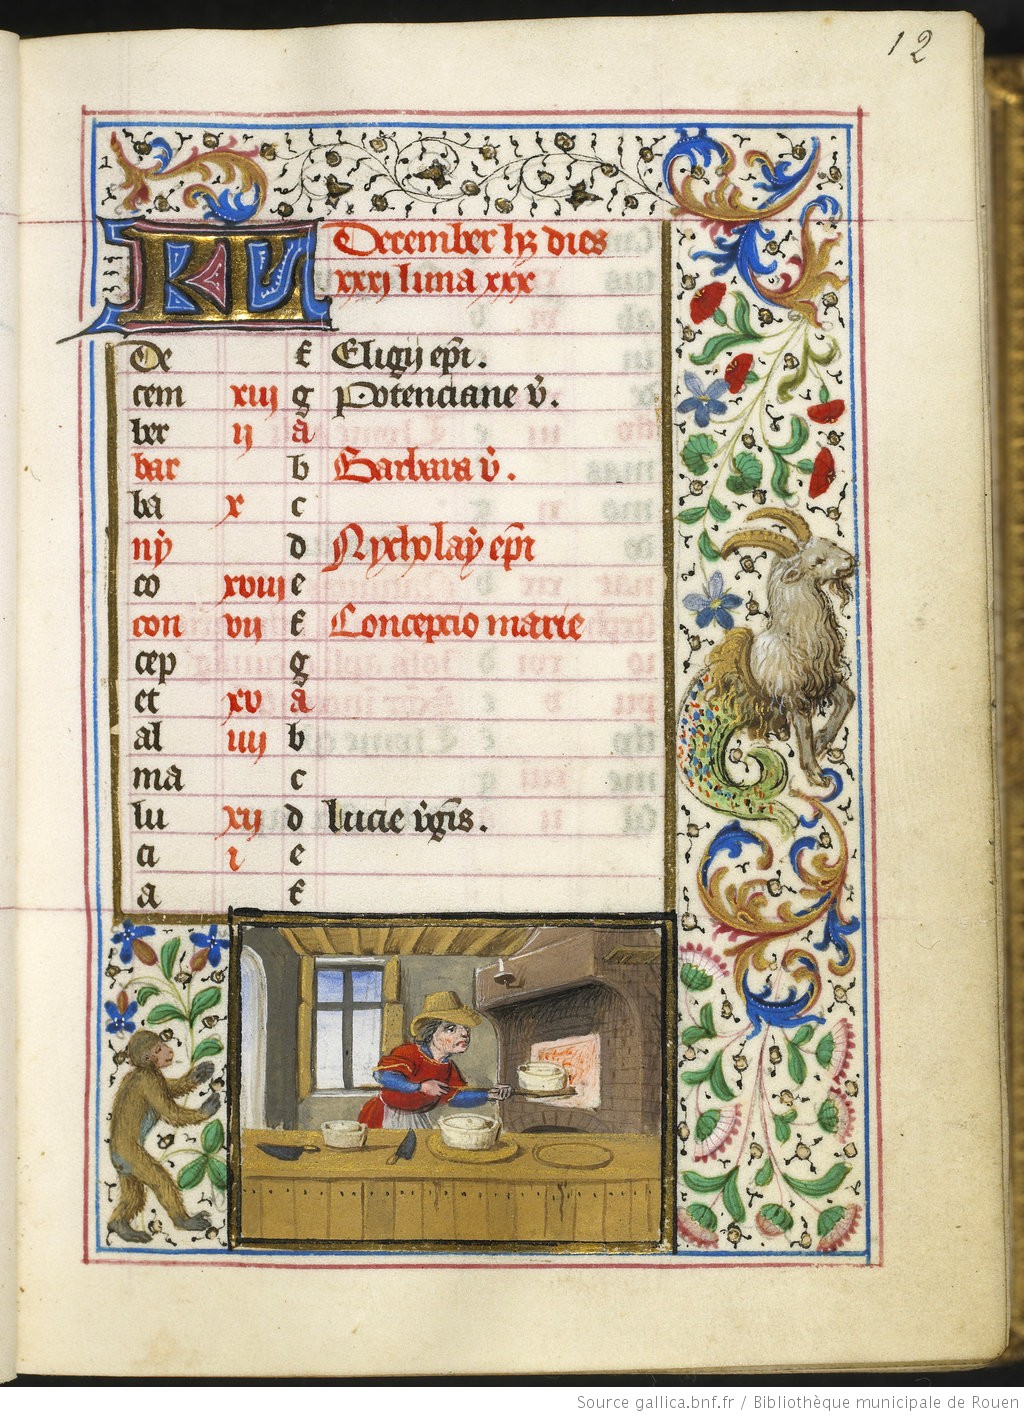 12
KL December hꝫ dies
xxxi luna xxx
De f Eligij ep̄i.
cem xiij g Potenciane v̄.
ber ij a
bar b Barbara v̄.
ba x c
nÿ d Nycholaÿ ep̄i
co xviij e
con vij f Concepcio marie
cep g
et xv a
al iiij b
ma c
lu xij d lucie v̄gīs.
ci i e
a f
Source gallica.bnf.fr / Bibliothèque municipale de Rouen